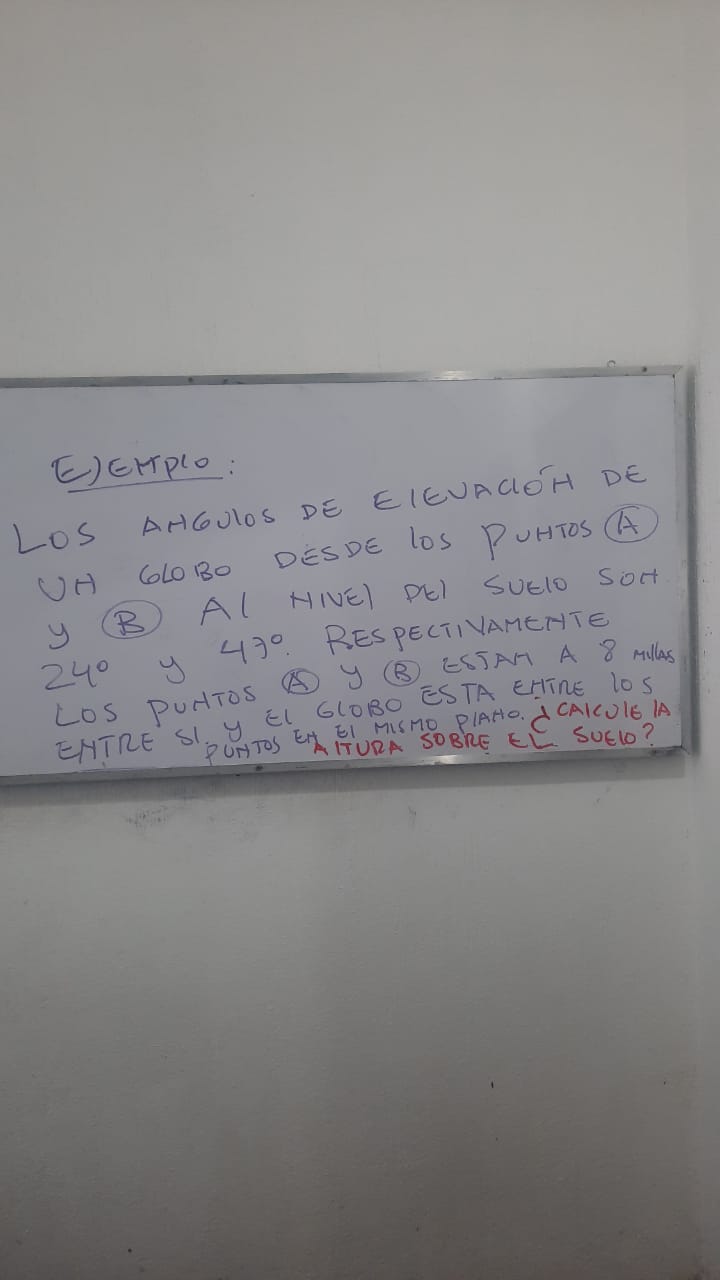 EJEMPLO:
LOS ANGULOS DE ElEVACIÓN DE
UN GLOBO DESDE los PUNTOS A
y B Al NIVEl DEl SUElO SON
24° y 47°. RESPECTIVAMENTE
LOS PUNTOS A y B ESTAN A 8 Millas
ENTRE SI. y El GLOBO ESTA ENTRE lOS
PUNTOS EN El MISMO PlANO. ¿CALCULE lA
AlTURA SOBRE EL SUElO?